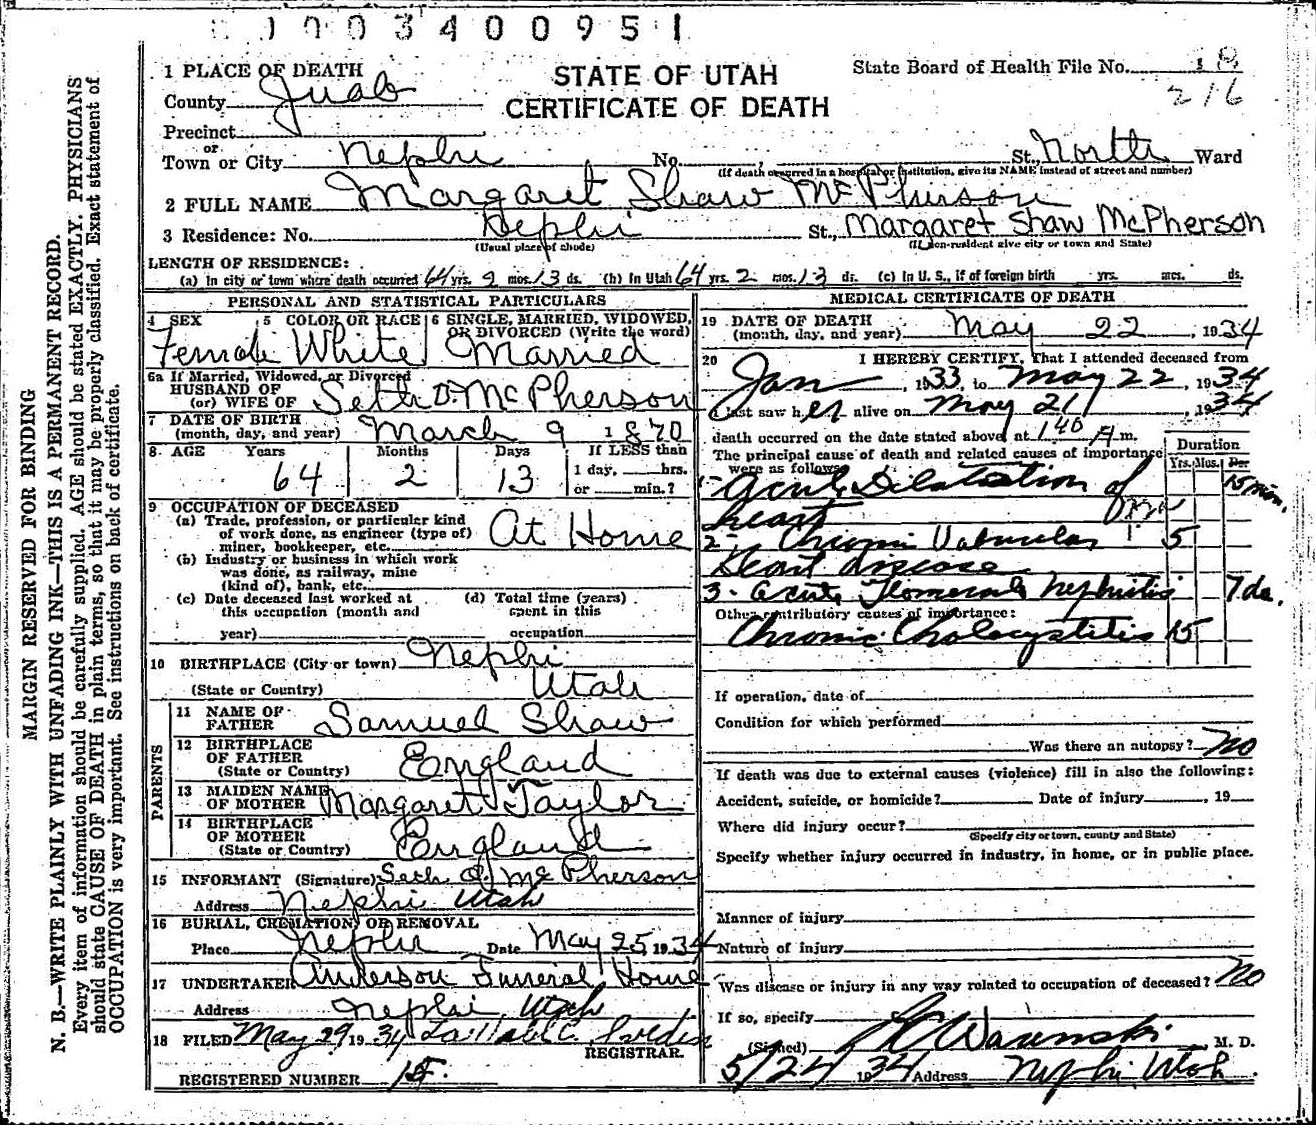 1003400951
1 PLACE OF DEATH
STATE OF UTAH
CERTIFICATE OF DEATH
State Board of Health File No. 18
216
County Juab
Precinct
or
Town or City Nephi No. , St., North Ward
(If death occurred in a hospital or institution, give its NAME instead of street and number)
2 FULL NAME Margaret Shaw McPherson
3 Residence: No. Nephi St., Margaret Shaw McPherson
(Usual place of abode) (If non-resident give city or town and State)
LENGTH OF RESIDENCE:
(a) In city or town where death occurred 64 yrs. 2 mos. 13 ds. (b) In Utah 64 yrs. 2 mos. 13 ds. (c) In U. S., if of foreign birth yrs. mos. ds.
PERSONAL AND STATISTICAL PARTICULARS
4 SEX 5 COLOR OR RACE 6 SINGLE, MARRIED, WIDOWED,
OR DIVORCED (Write the word)
Female White Married
6a If Married, Widowed, or Divorced
HUSBAND OF
(or) WIFE OF Seth D. McPherson
7 DATE OF BIRTH
(month, day, and year) March 9 1870
8 AGE Years Months Days If LESS than
1 day, hrs.
64 2 13 or min.?
9 OCCUPATION OF DECEASED
(a) Trade, profession, or particular kind
of work done, as engineer (type of)
miner, bookkeeper, etc. At Home
(b) Industry or business in which work
was done, as railway, mine
(kind of), bank, etc.
(c) Date deceased last worked at
this occupation (month and
year)
(d) Total time (years)
spent in this
occupation
10 BIRTHPLACE (City or town) Nephi
(State or Country) Utah
PARENTS
11 NAME OF
FATHER Samuel Shaw
12 BIRTHPLACE
OF FATHER England
(State or Country)
13 MAIDEN NAME
OF MOTHER Margaret Taylor
14 BIRTHPLACE
OF MOTHER England
(State or Country)
15 INFORMANT (Signature) Seth D. McPherson
Address Nephi Utah
16 BURIAL, CREMATION, OR REMOVAL
Place Nephi Date May 25, 1934
17 UNDERTAKER Anderson Funeral Home
Address Nephi, Utah
18 FILED May 29 1934
REGISTRAR.
REGISTERED NUMBER 15
MEDICAL CERTIFICATE OF DEATH
19 DATE OF DEATH
(month, day, and year) May 22, 1934
20 I HEREBY CERTIFY, That I attended deceased from
Jan, 1933, to May 22, 1934
I last saw her alive on May 21, 1934
death occurred on the date stated above, at 1 40 A m.
The principal cause of death and related causes of importance
were as follows:
Duration
Yrs. Mos. Day
1- Acute Dilatation of 15 min.
heart
2- Chronic Valvular 5
Heart disease
3- Acute Nephritis 7 da.
Other contributory causes of importance:
Chronic Cholecystitis 15
If operation, date of
Condition for which performed
Was there an autopsy? No
If death was due to external causes (violence) fill in also the following:
Accident, suicide, or homicide? Date of injury , 19
Where did injury occur?
(Specify city or town, county and State)
Specify whether injury occurred in industry, in home, or in public place.
Manner of injury
Nature of injury
Was disease or injury in any way related to occupation of deceased? No
If so, specify
(Signed) , M. D.
5/24 1934 Address Nephi, Utah
MARGIN RESERVED FOR BINDING
N. B.—WRITE PLAINLY WITH UNFADING INK—THIS IS A PERMANENT RECORD.
Every item of information should be carefully supplied. AGE should be stated EXACTLY. PHYSICIANS
should state CAUSE OF DEATH in plain terms, so that it may be properly classified. Exact statement of
OCCUPATION is very important. See instructions on back of certificate.